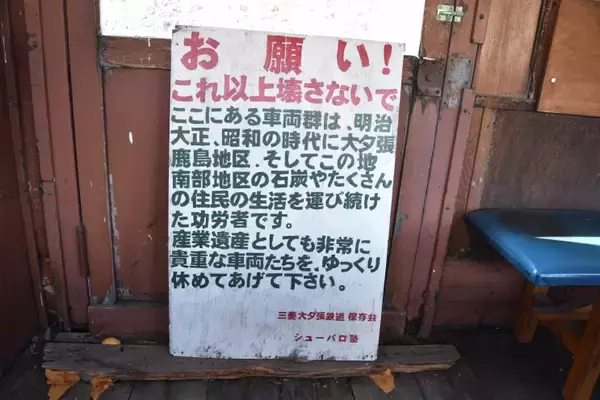 お願い!
これ以上壊さないで
ここにある車両群は、明治
大正、昭和の時代に大夕張
鹿島地区、そしてこの地
南部地区の石炭やたくさん
の住民の生活を運び続け
た功労者です。
産業遺産としても非常に
貴重な車両たちを、ゆっくり
休めてあげて下さい。
三菱大夕張鉄道 保存会
シューパロ塾